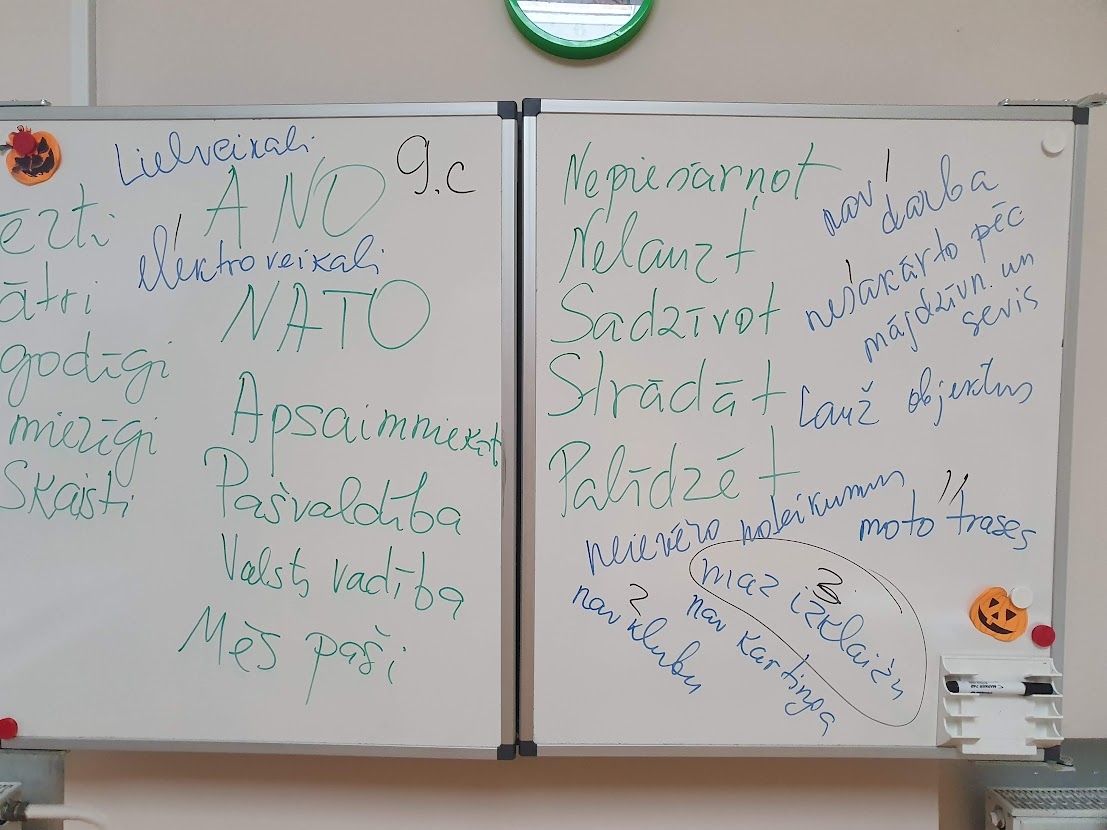 Lielveikali
9.c
ANO
ēzti
elektroveikali
ātri
NATO
godīgi
Apsaimniekot
mierīgi
Pašvaldība
Skaisti
Valsts vadība
Mēs paši
Nepiesārņot
nav darba
Nelauzt
nesakārto pēc
mājdzīvn. un
sevis
Sadzīvot
Strādāt
Lauž objektus
Palīdzēt
neievēro noteikumus
moto trases
maz izklaižu
3
nav kartinga
2
nav klubu